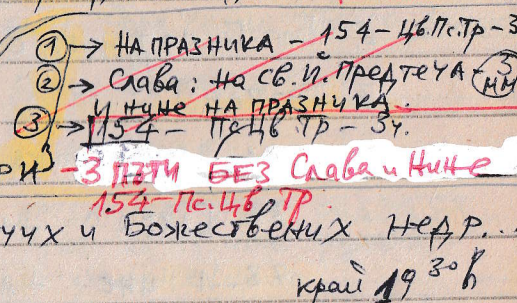 ① → НА ПРАЗНИКА - 154 - Цв.Пс.Тр - 3
② → Слава: на Св. Й. Предтеча - 3
И нине НА ПРАЗНИКА.
③ → 154 - Пс.Цв Тр - 3ч.
- 3 ПЪТИ БЕЗ Слава и Нине
154 - Пс.Цв Тр
и Божествених недр...
край 19 30 ч